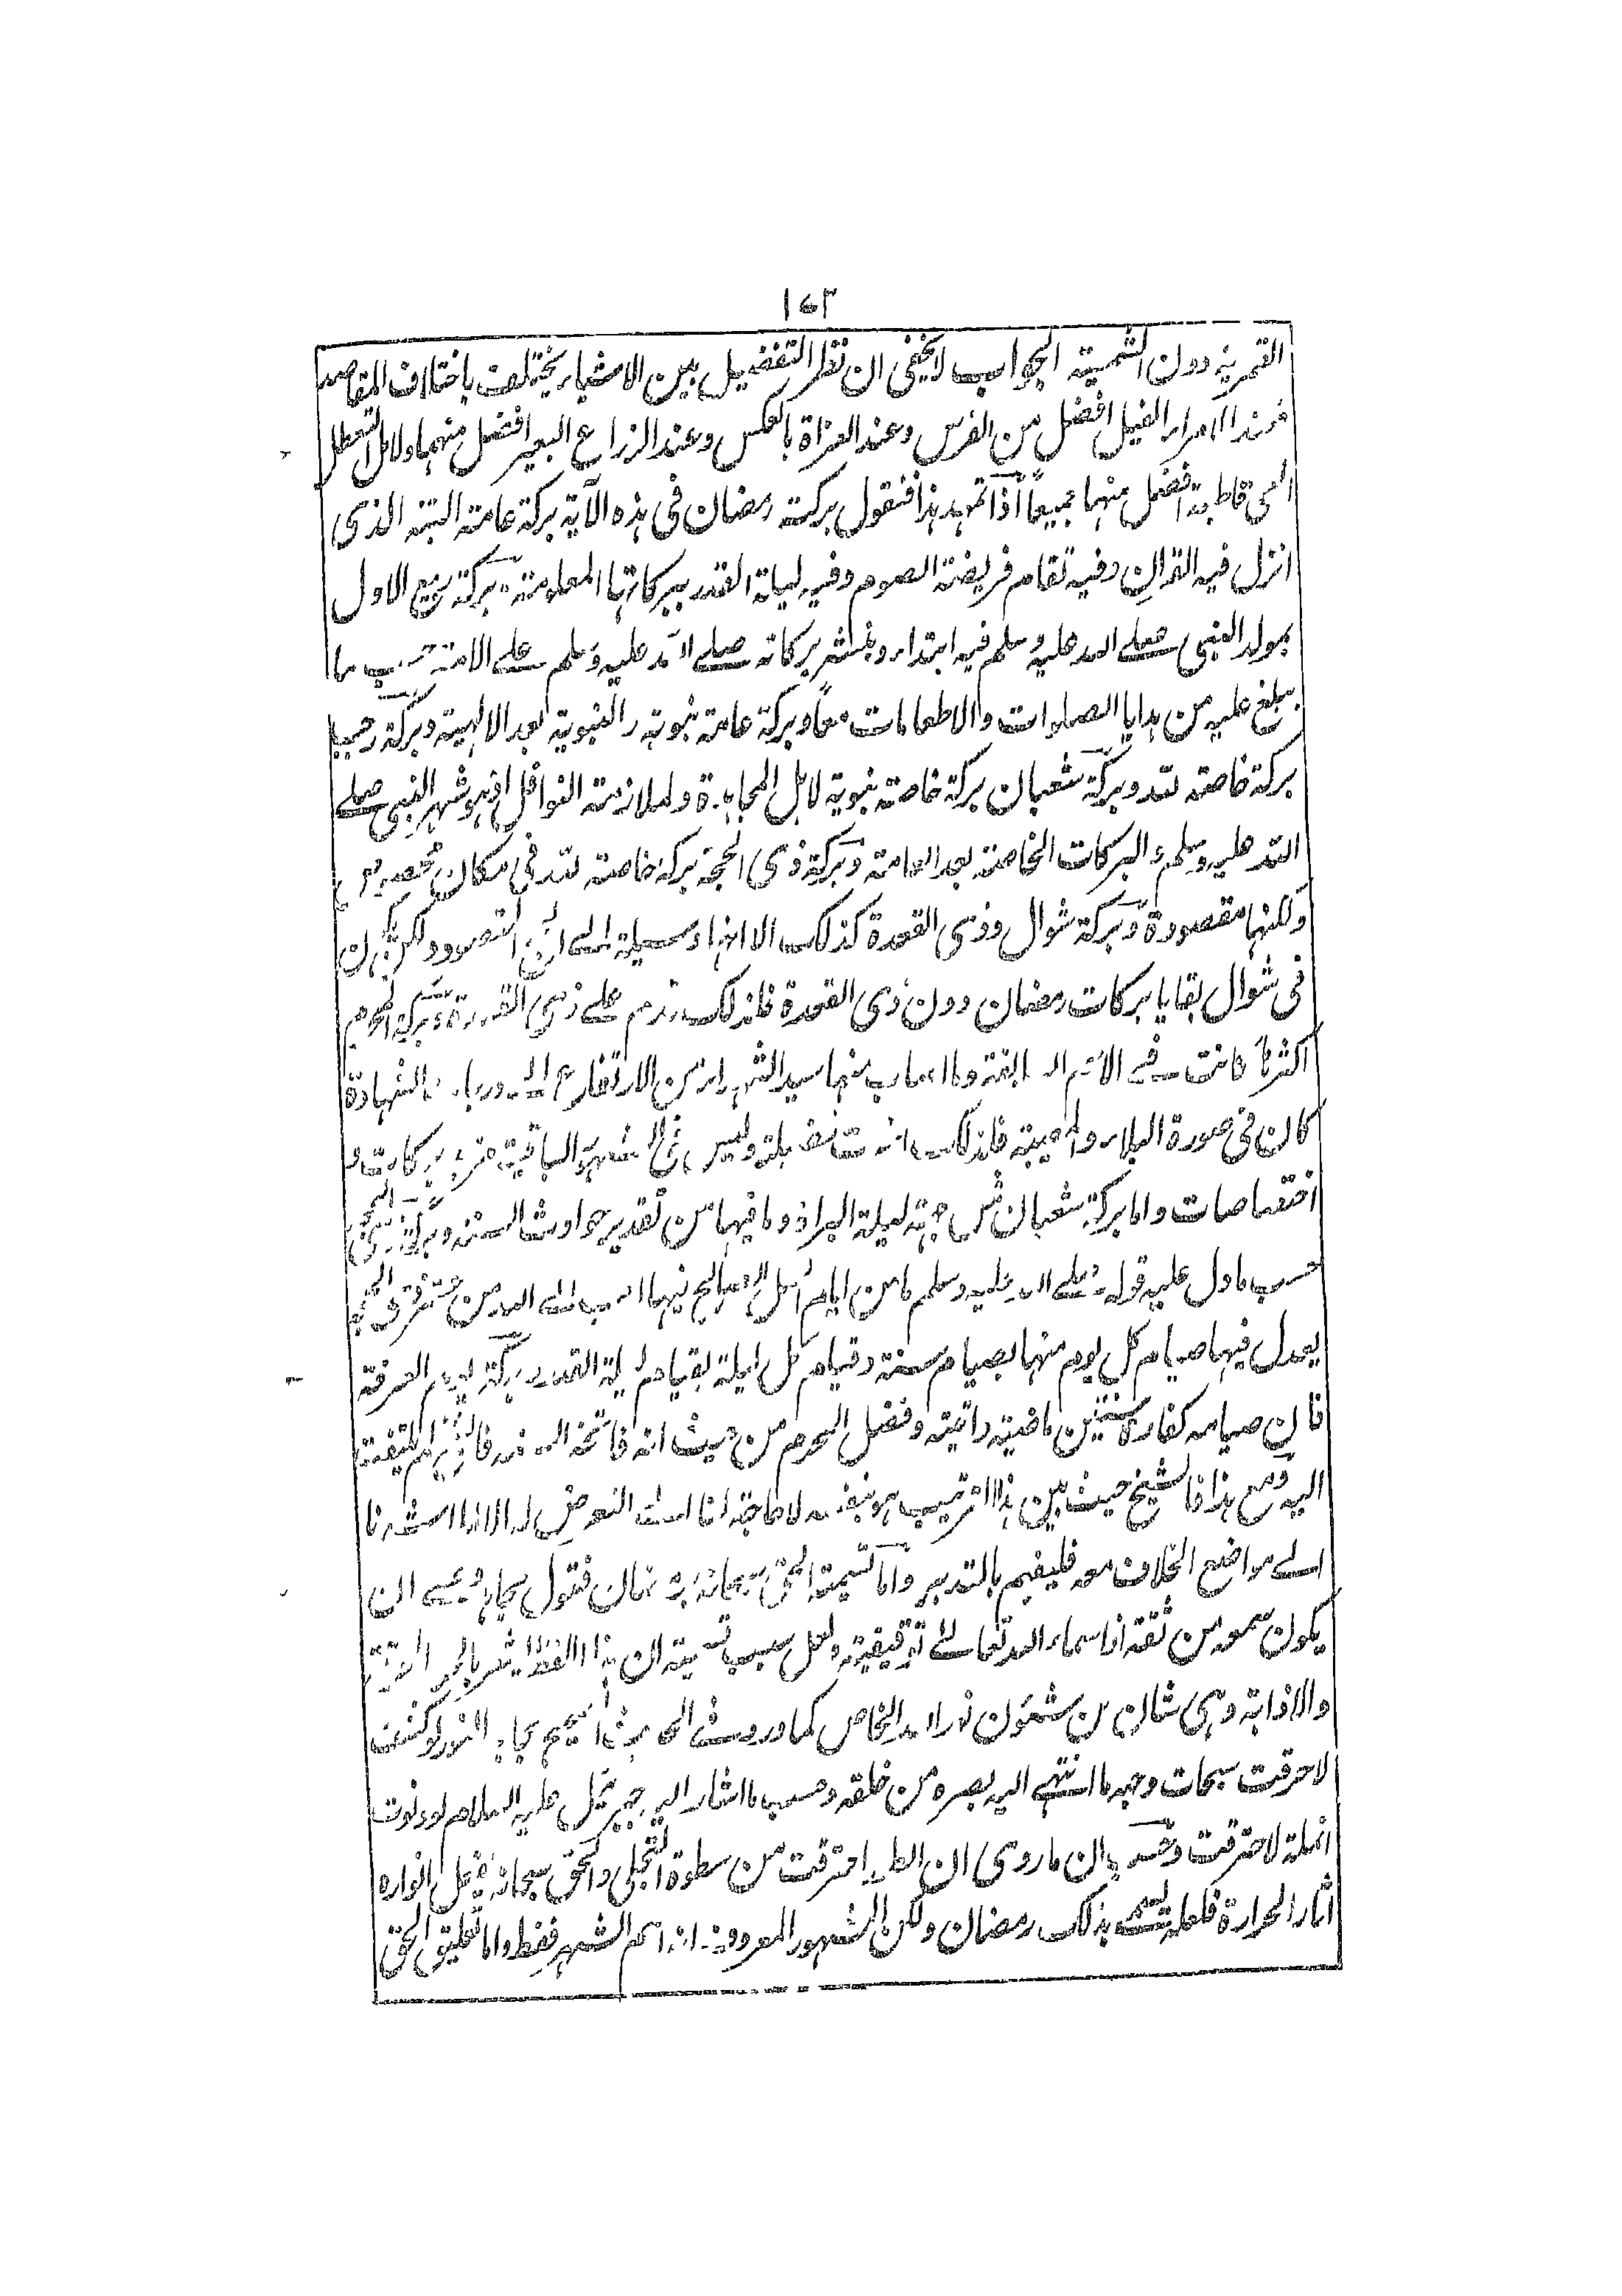 ١٤٣
القمرية دون الشمسية الجواب لا يخفى ان نظر التفضيل بين الاشياء يختلف باختلاف المقاصد
فعند الامراء الفيل افضل من الفرس وعند الغزاة بالعكس وعند الزراع البعير افضل منهما ولاهل التعطل
قاطبة افضل منهما جميعاً اذا تمهد هذا فنقول بركة رمضان فى هذه الآية بركة عامة الهية الذى
انزل فيه القرآن وفيه تقام فريضة الصوم وفيه ليلة القدر ببركاتها المعلومة وبركة ربيع الاول
بمولد النبى صلے الله عليه وسلم فيه ابتداء وبنشر بركاته صلے الله عليه وسلم علے الامة حسب ما
يبلغ عليه من هدايا الصلوات والاطعامات معاً وبركة عامة نبوية والنبوية بعد الالهية وبركة رجب
بركة خاصة لله وبركة شعبان بركة خاصة نبوية لاهل المجاهدة ولملازمة النوافل اذ هو شهر النبى صلے
الله عليه وسلم والبركات الخاصة بعد العامة وبركة ذى الحجة بركة خاصة لله فى مكان مخصوص
ولكنها مقصودة وبركة شوال وذى القعدة كذلك الا انها وسيلة الے المقصود ولكن
فى شوال بقايا بركات رمضان دون ذى القعدة فلذلك قدم علے ذى القعدة وبركة المحرم
اكثرها كانت فى الامم السابقة وما اصاب منها سيد الشهداء من الارتفاع الے الشهادة
كان فى صورة البلاء والمصيبة فلذلك وليس فى الشهور الباقية بركات و
اختصاصات واما بركة شعبان من جهة ليلة البراة وما فيها من تقدير حوادث السنة وبركة
حسب ما دل عليه قوله صلے الله عليه وسلم ما من ايام العمل الصالح فيها احب الے الله من عشر ذى الحجة
يعدل فيها صيام كل يوم منها بصيام سنة وقيام كل ليلة بقيام ليلة القدر وبركة يوم العرفة
فان صيامه كفارة سنتين ماضية واتية وفضل المحرم من حيث انه فاتحة السنة
اليه ومع هذا فالشيخ حيث بين هذا الترتيب هو بنفسه لا حاجة لنا الے التعرض له الا انا اشرنا
الے مواضع الخلاف معه فليفهم بالتدبر واما تسمية الحق سبحانه برمضان فنقول بجوازه وعسے ان
يكون سمعه من ثقة اذ اسماء الله تعالے توقيفية ولعل سبب تسميته ان هذا اللفظ يشعر بالحر
والاذابة وهى شان من شئون نور الله الخاص كما ورد فى الحديث الصحيح حجابه النور لو كشفت
لاحرقت سبحات وجهه ما انتهى اليه بصره من خلقه وحسب ما اشار اليه جبرئيل عليه السلام لو دنوت
انملة لاحترقت وحسب ان ما روى ان الطور احترقت من سطوة التجلى والحق سبحانه يفعل انواره
اثار الحرارة فلعله تسمى بذلك رمضان ولكن الشهور المعروفة انه اسم الشهر فقط واما تعليق الحق